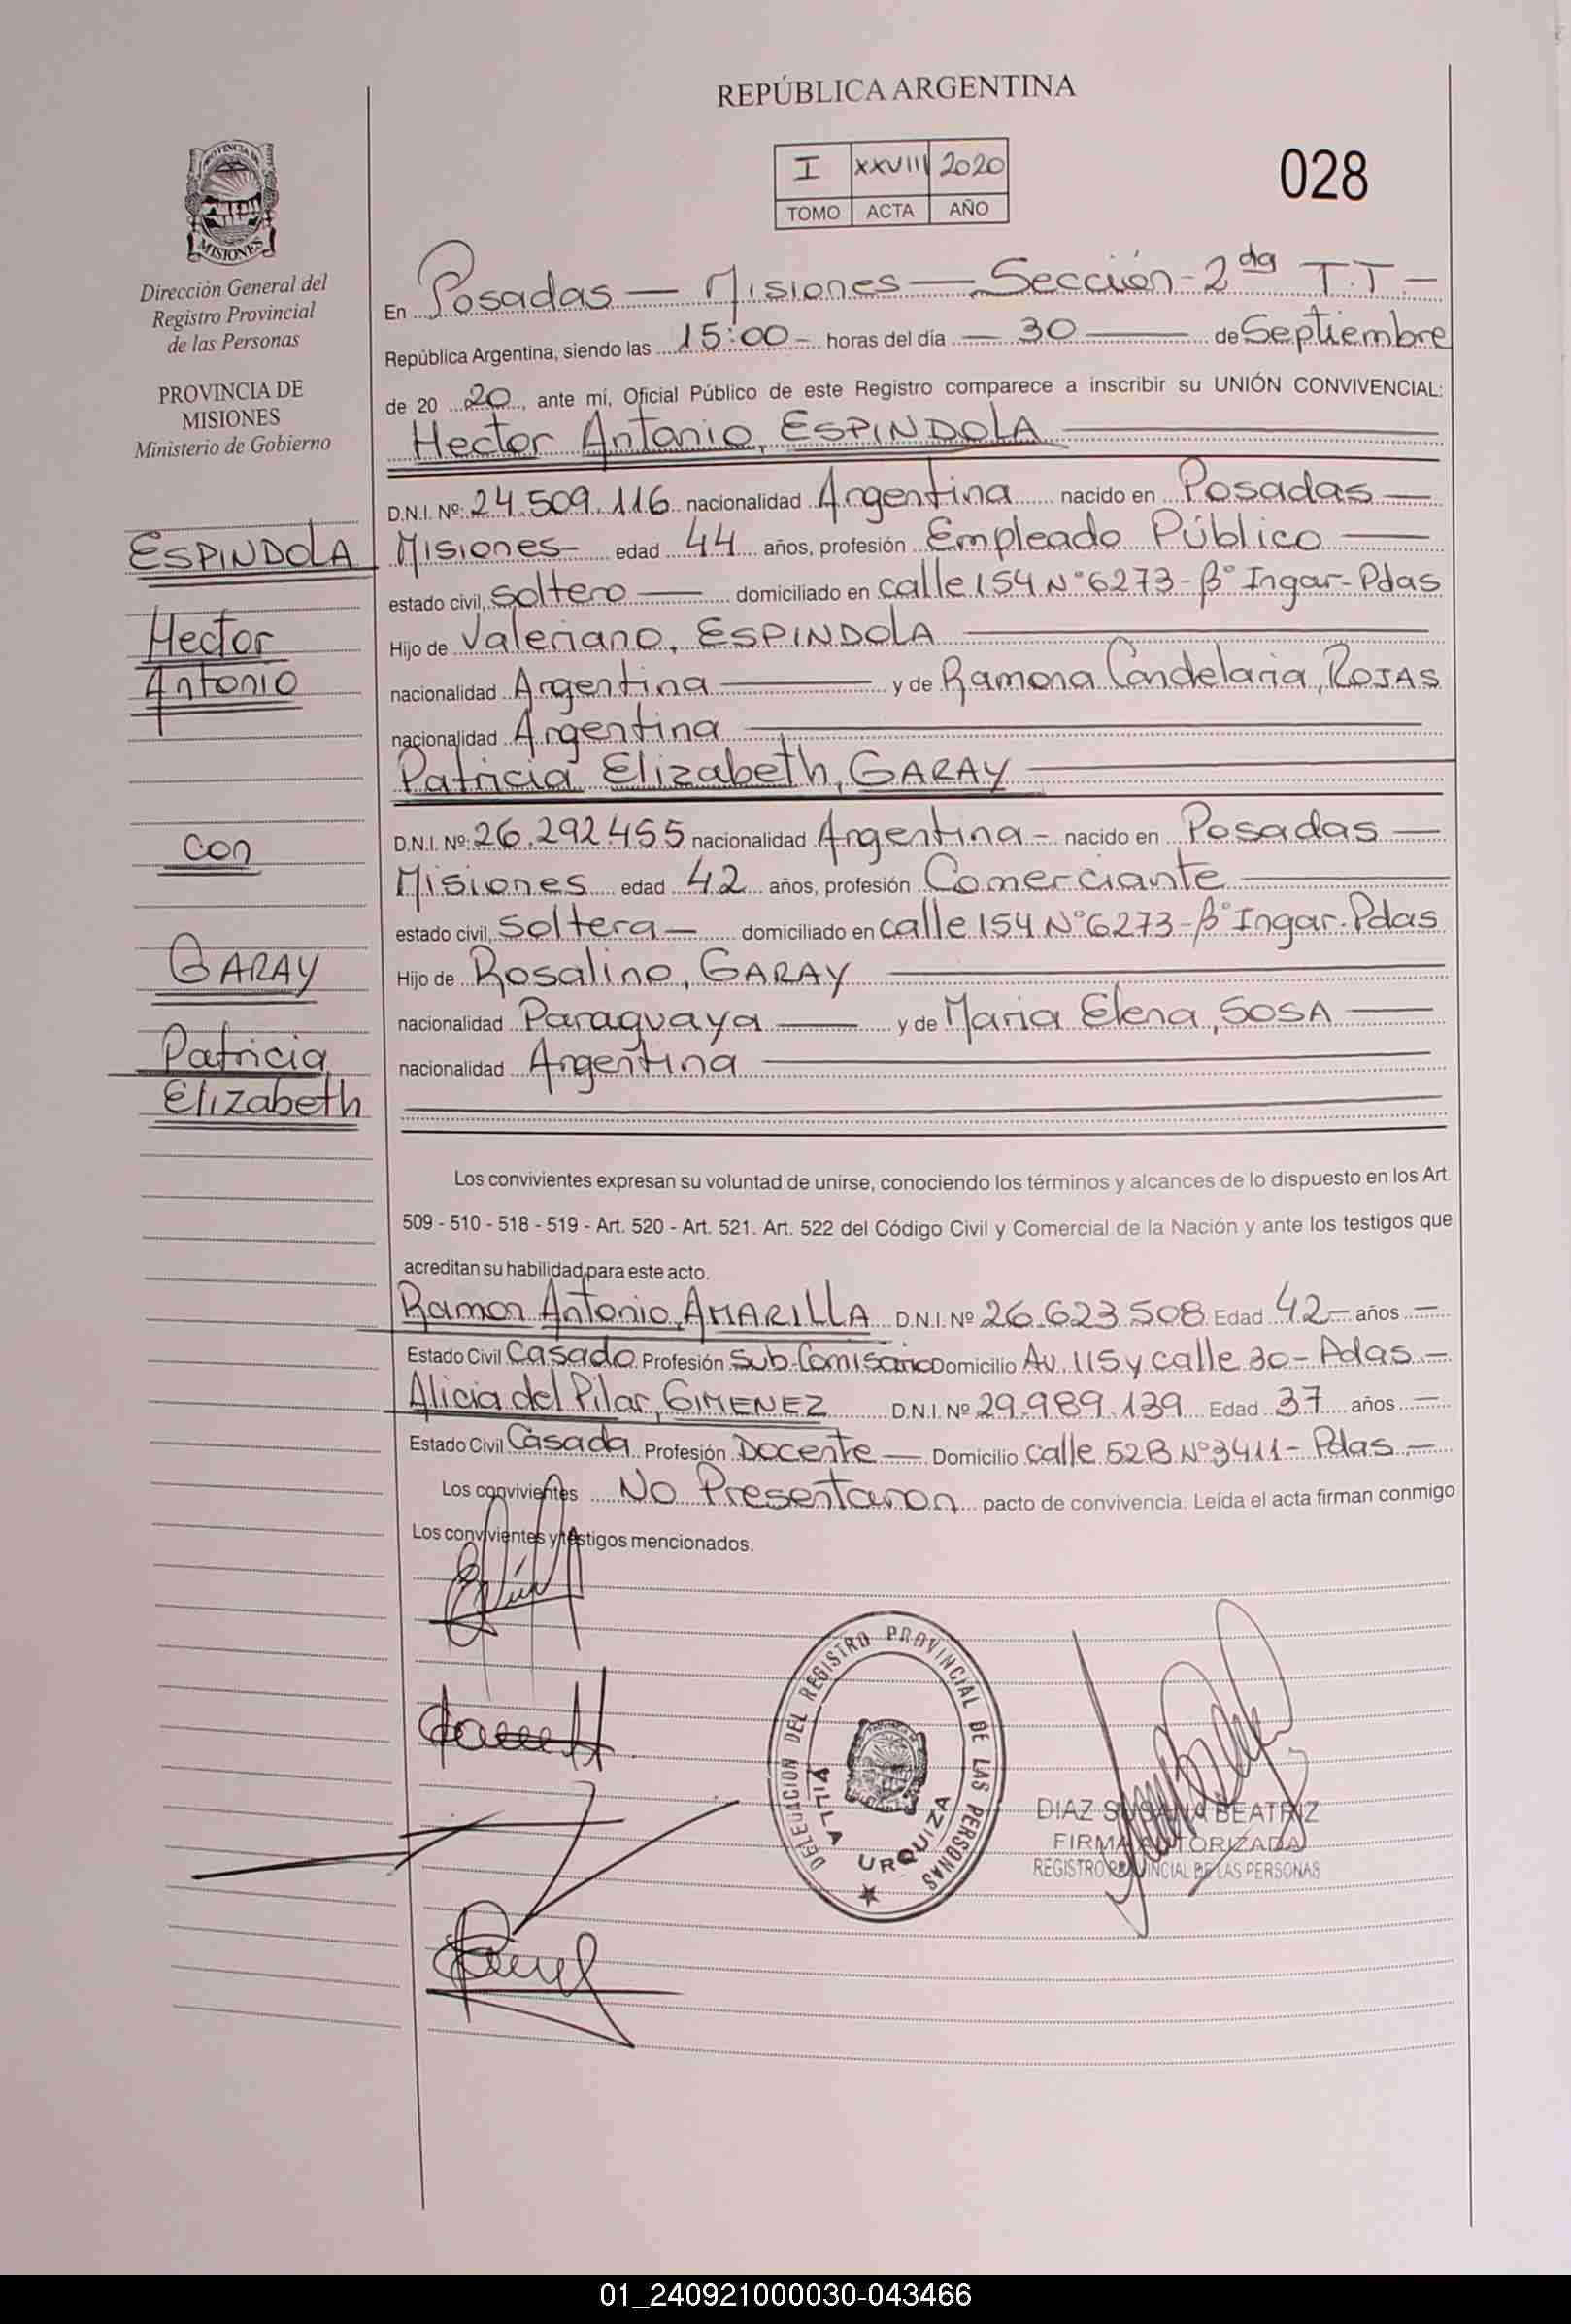 REPÚBLICA ARGENTINA
I XXVIII 2020
TOMO ACTA AÑO
028
PROVINCIA DE
MISIONES
Dirección General del
Registro Provincial
de las Personas
PROVINCIA DE
MISIONES
Ministerio de Gobierno
ESPINDOLA
Hector
Antonio
con
GARAY
Patricia
Elizabeth
En Posadas - Misiones - Sección - 2da T.T. -
República Argentina, siendo las 15:00 - horas del día - 30 - de Septiembre
de 20 20, ante mí, Oficial Público de este Registro comparece a inscribir su UNIÓN CONVIVENCIAL:
Hector Antonio, ESPINDOLA
D.N.I. Nº: 24.509.116 nacionalidad Argentina nacido en Posadas -
Misiones - edad 44 años, profesión Empleado Público -
estado civil, soltero - domiciliado en calle 154 Nº 6273 - Bº Ingar - Pdas
Hijo de Valeriano, ESPINDOLA
nacionalidad Argentina - y de Ramona Candelaria, ROJAS
nacionalidad Argentina
Patricia Elizabeth, GARAY
D.N.I. Nº: 26.292.455 nacionalidad Argentina - nacido en Posadas -
Misiones edad 42 años, profesión Comerciante
estado civil, soltera - domiciliado en calle 154 Nº 6273 - Bº Ingar. Pdas
Hijo de Rosalino, GARAY
nacionalidad Paraguaya - y de Maria Elena, SOSA -
nacionalidad Argentina
Los convivientes expresan su voluntad de unirse, conociendo los términos y alcances de lo dispuesto en los Art.
509 - 510 - 518 - 519 - Art. 520 - Art. 521. Art. 522 del Código Civil y Comercial de la Nación y ante los testigos que
acreditan su habilidad para este acto.
Ramon Antonio, AMARILLA D.N.I. Nº 26.623.508 Edad 42 - años -
Estado Civil Casado Profesión Sub-Comisario Domicilio Av. 115 y calle 30 - Pdas -
Alicia del Pilar, GIMENEZ D.N.I. Nº 29.989.139 Edad 37 años -
Estado Civil Casada Profesión Docente - Domicilio calle 52B Nº 3411 - Pdas -
Los convivientes No Presentaron pacto de convivencia. Leída el acta firman conmigo
Los convivientes y testigos mencionados.
DELEGACION DEL REGISTRO PROVINCIAL DE LAS PERSONAS
VILLA URQUIZA
DIAZ SUSANA BEATRIZ
FIRMA AUTORIZADA
REGISTRO PROVINCIAL DE LAS PERSONAS
01_240921000030-043466